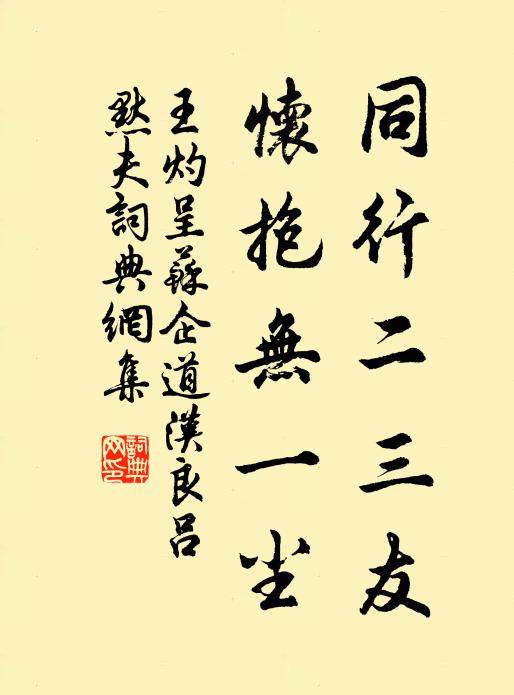 同行二三友
懷抱無一尘
王灼呈蘇企道漢良呂
默夫詞典網集
詞典
网印